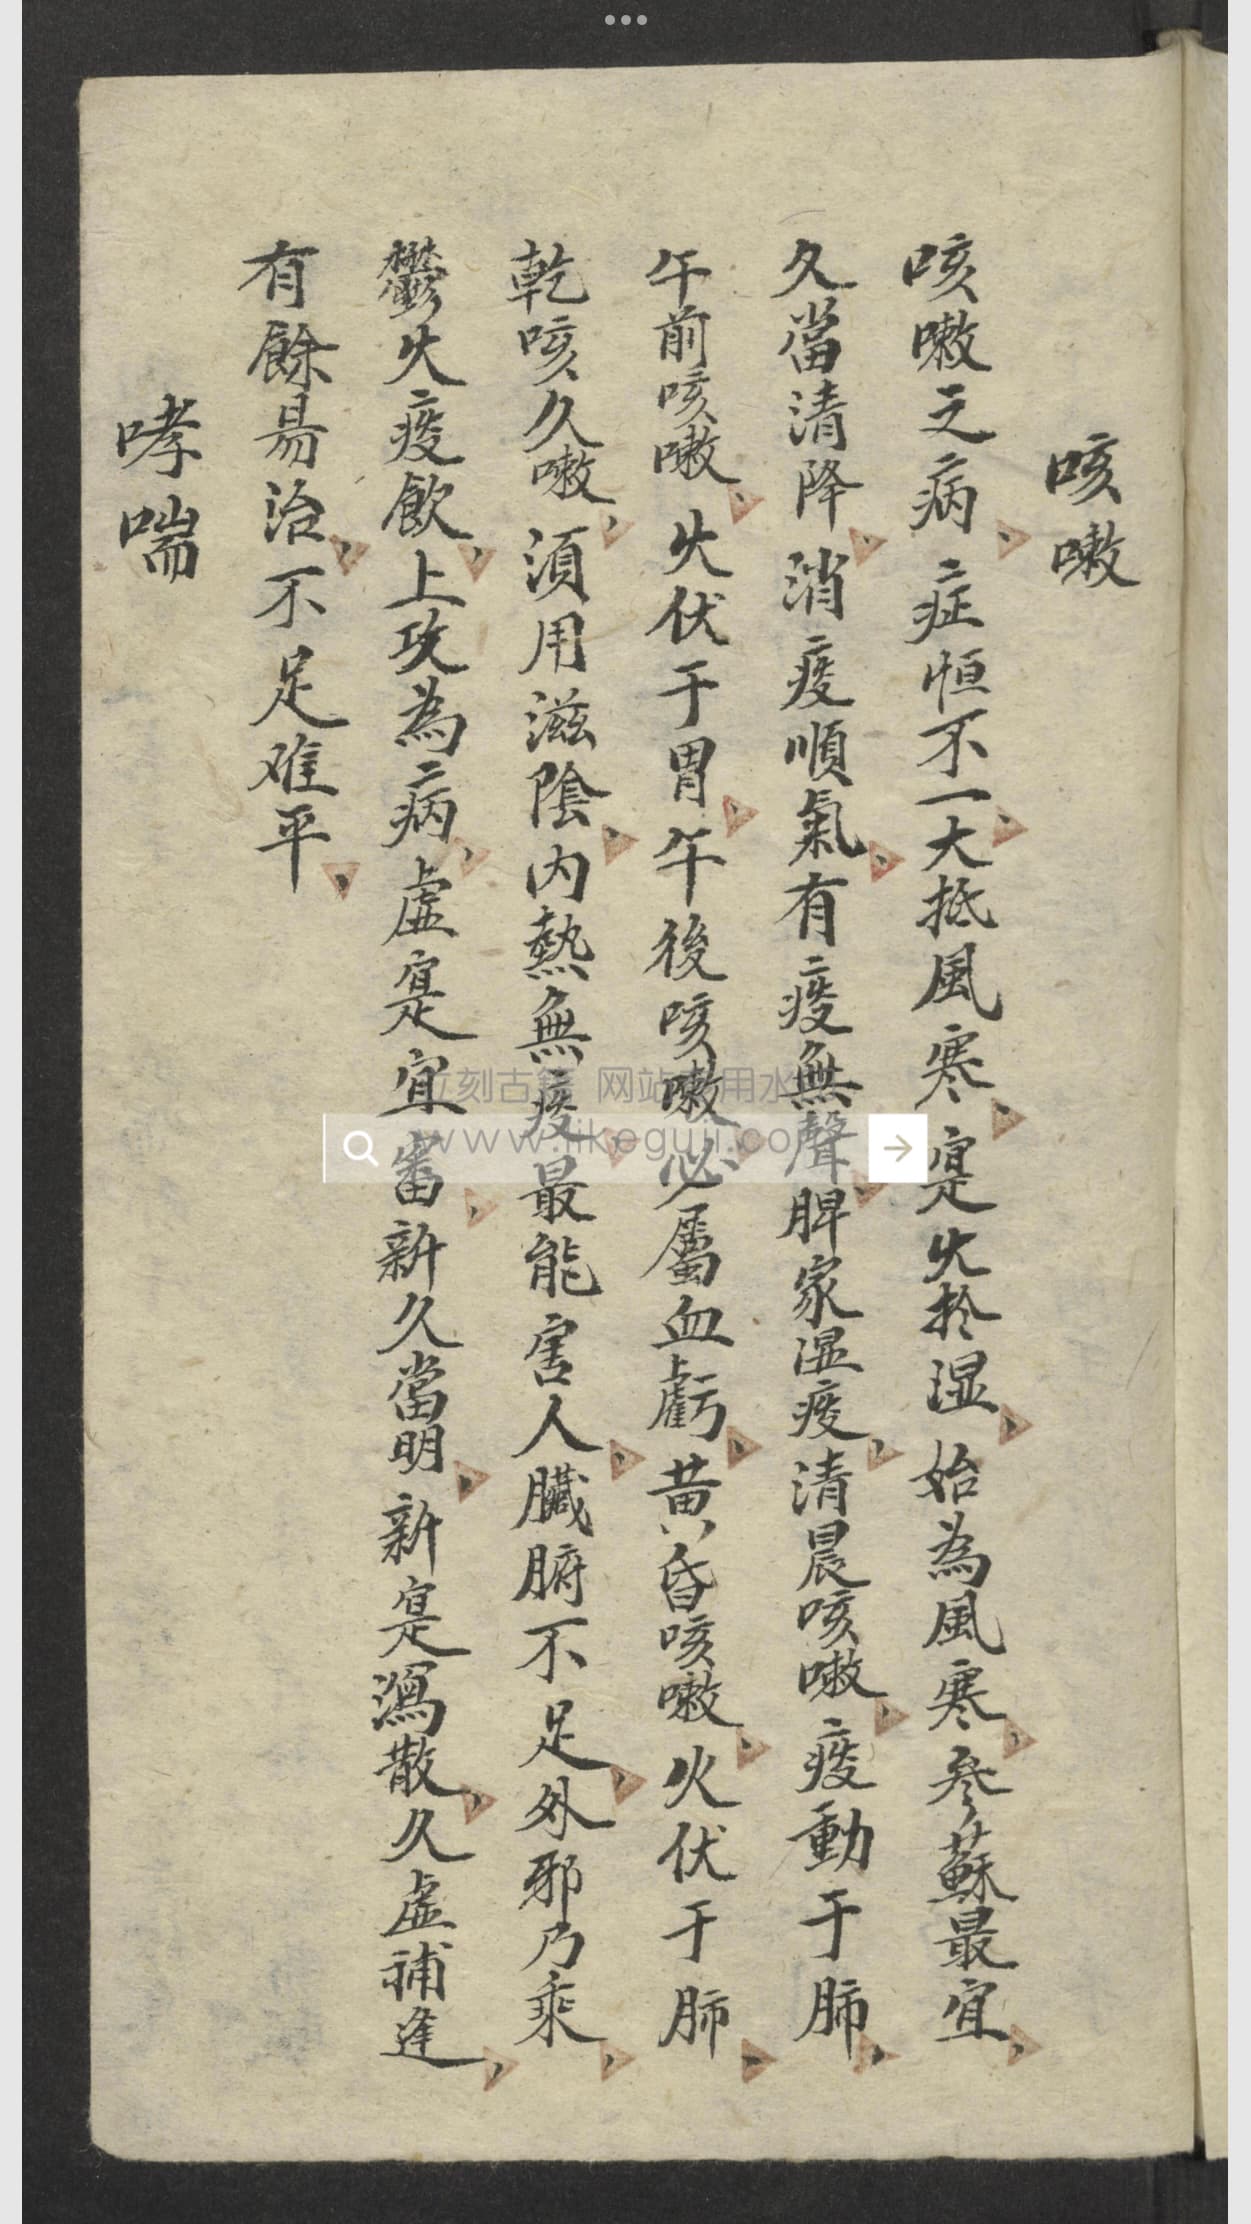 咳嗽
咳嗽之病症恒不一大抵風寒寔火拎湿始為風寒参蘇最宜
久當清降消痰順氣有痰無聲脾家湿痰清晨咳嗽痰動于肺
午前咳嗽火伏于胃午後咳嗽必屬血虧黄昏咳嗽火伏于肺
乾咳久嗽須用滋陰内熱無痰最能害人臟腑不足外邪乃乘
鬱火痰飲上攻為病虚寔宜審新久當明新寔瀉散久虚補逢
有餘易治不足难平
哮喘
立刻古籍 网站 用水
www.likeguji.co